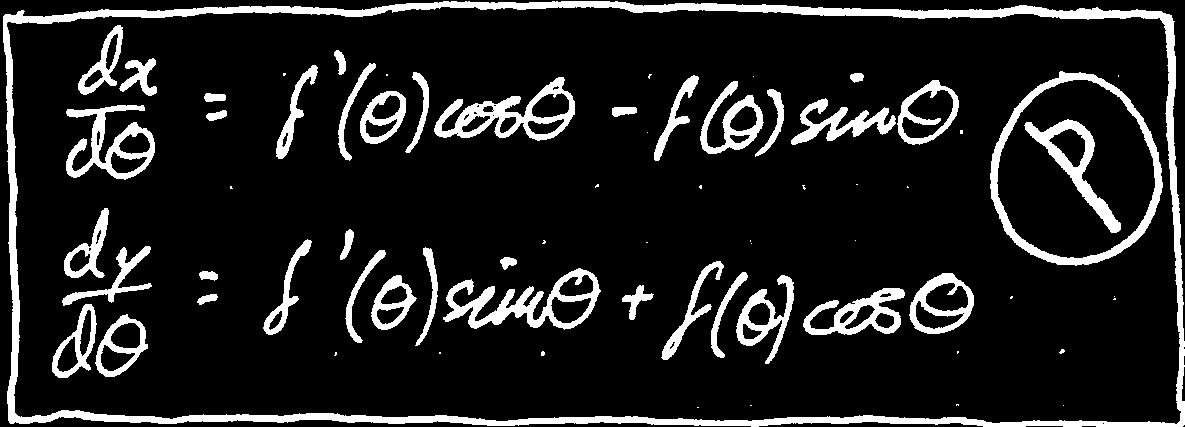 dx/dθ = f'(θ)cosθ - f(θ)sinθ.
P
dy/dθ = f'(θ)sinθ + f(θ)cosθ